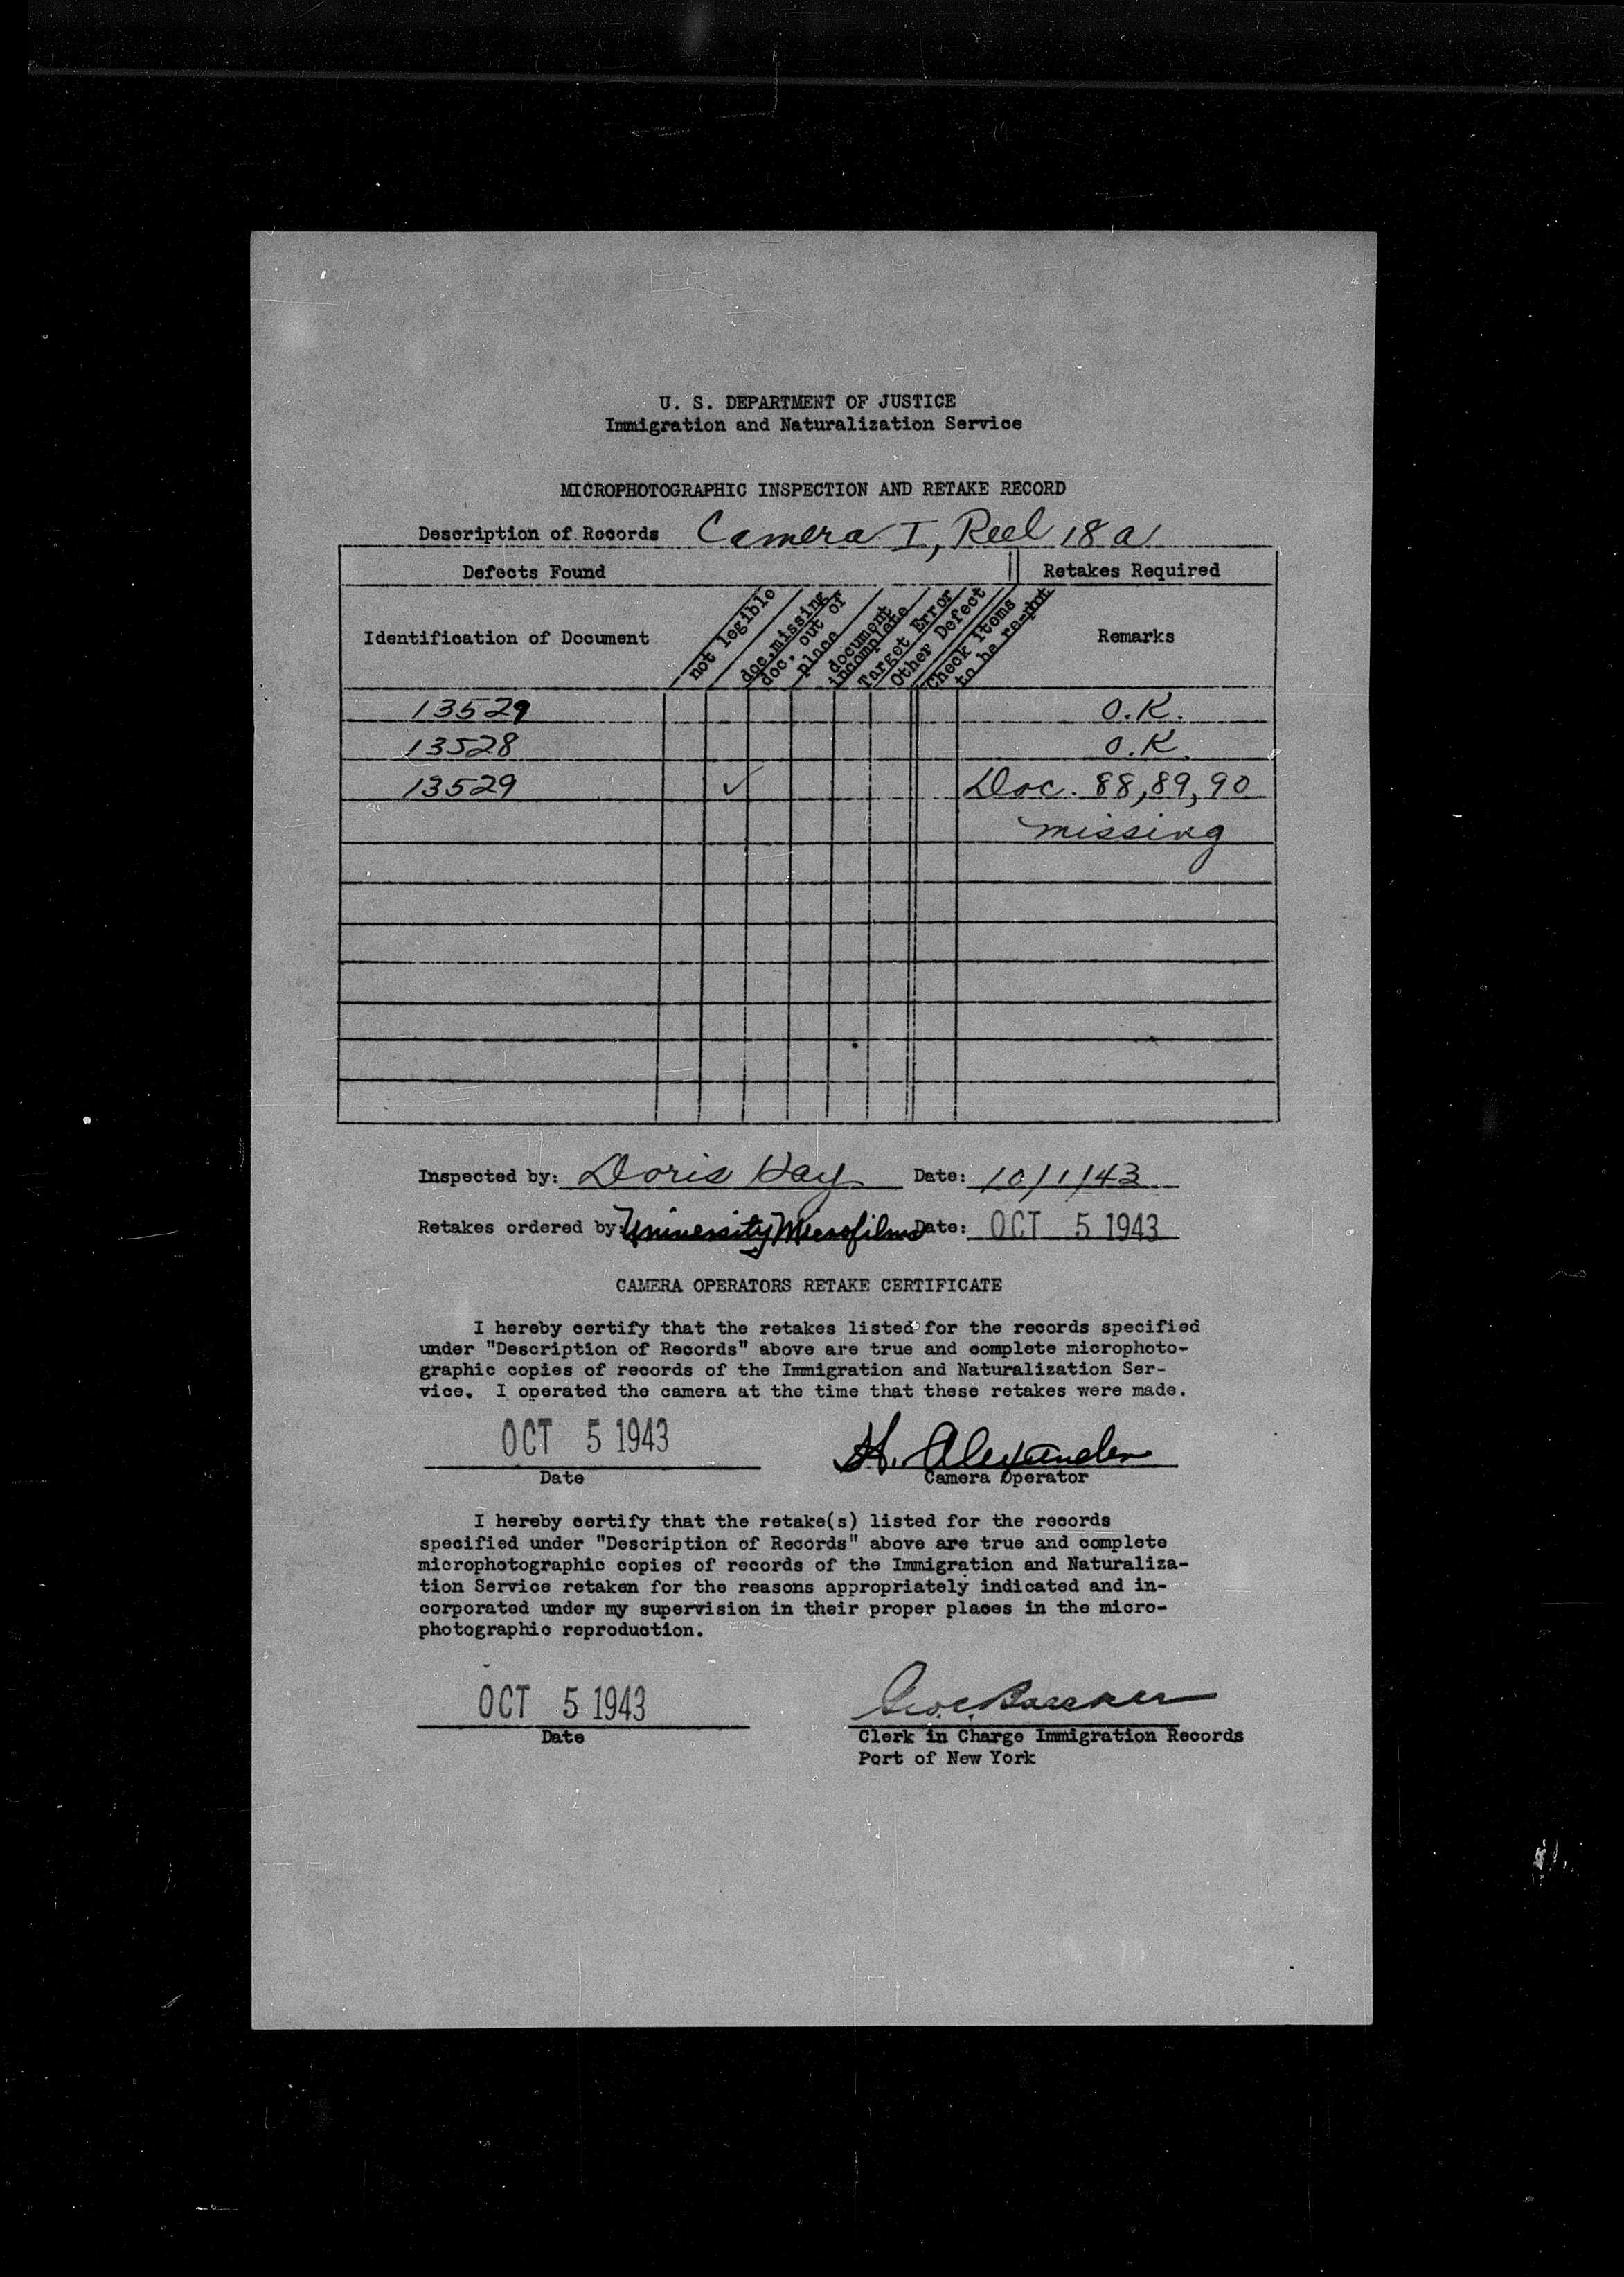 U. S. DEPARTMENT OF JUSTICE
Immigration and Naturalization Service
MICROPHOTOGRAPHIC INSPECTION AND RETAKE RECORD
Description of Records Camera I, Reel 18a
Defects Found
Retakes Required
Identification of Document
not legible
doc. missing
doc. out of
place
document
incomplete
Target Error
Other Defect
Check items
to be re-phot
Remarks
13529 O.K.
13528 O.K.
13529 ✓ Doc. 88, 89, 90
missing
Inspected by: Doris Date: 10/1/43
Retakes ordered by: University Microfilms Date: OCT 5 1943
CAMERA OPERATORS RETAKE CERTIFICATE
I hereby certify that the retakes listed for the records specified
under "Description of Records" above are true and complete microphoto-
graphic copies of records of the Immigration and Naturalization Ser-
vice. I operated the camera at the time that these retakes were made.
OCT 5 1943 H. Alexander
Date Camera Operator
I hereby certify that the retake(s) listed for the records
specified under "Description of Records" above are true and complete
microphotographic copies of records of the Immigration and Naturaliza-
tion Service retaken for the reasons appropriately indicated and in-
corporated under my supervision in their proper places in the micro-
photographic reproduction.
OCT 5 1943
Date Clerk in Charge Immigration Records
Port of New York